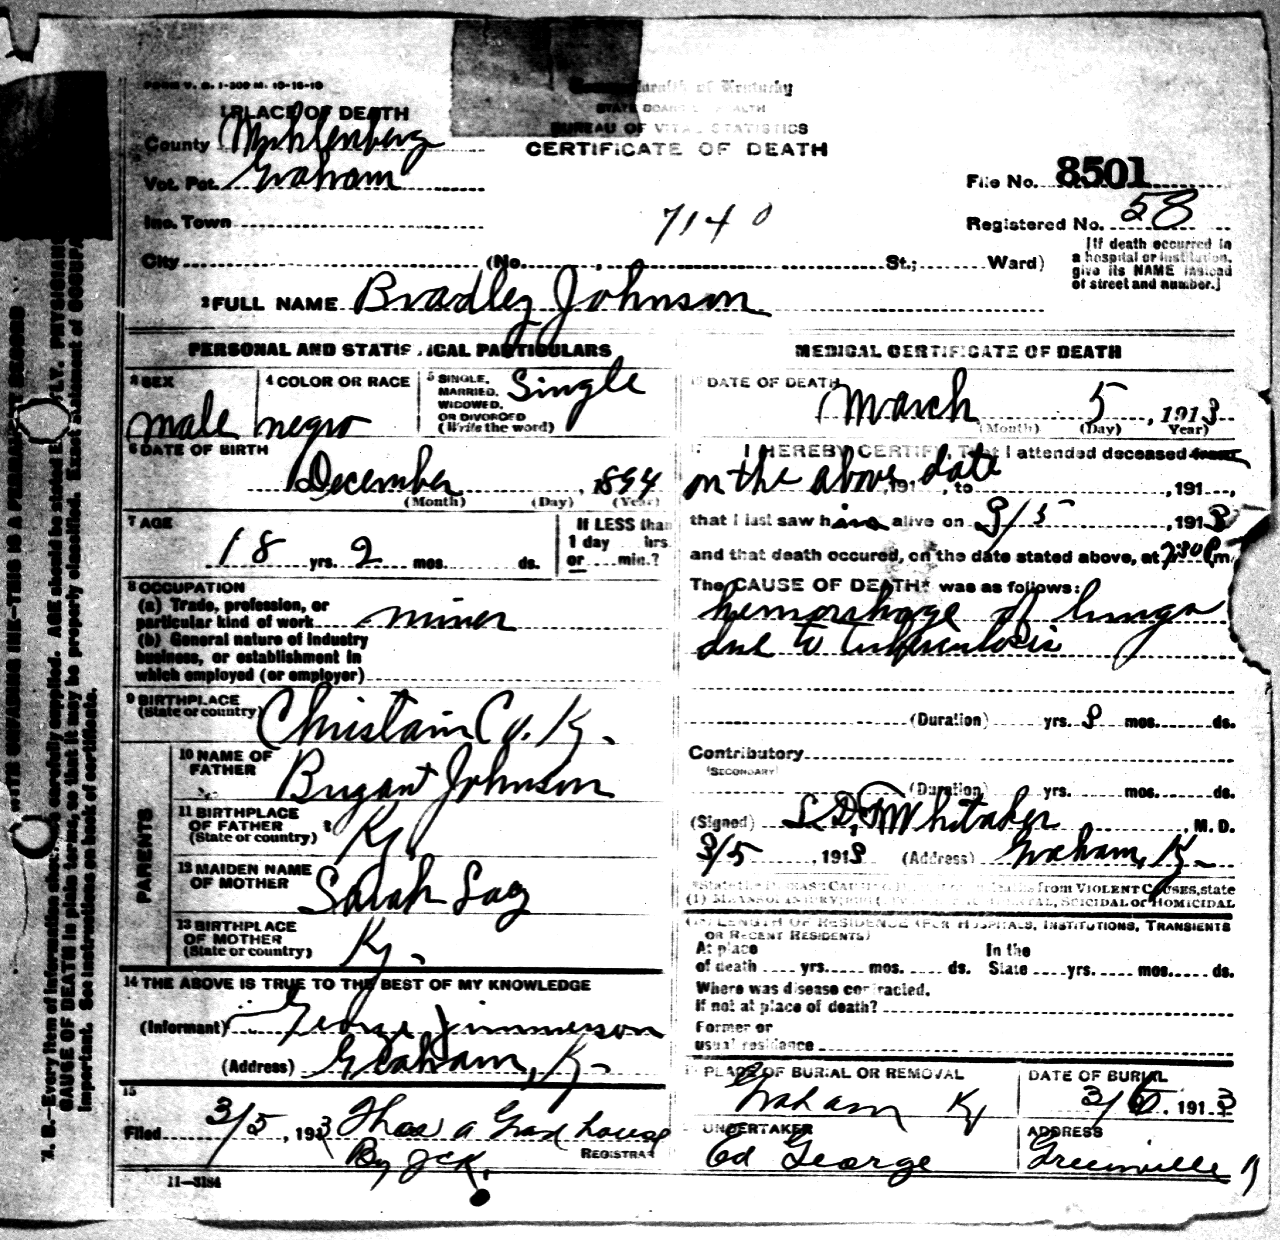 FORM V. S. 1-300 M. 10-16-10
1 PLACE OF DEATH
County Muhlenberg
Vot. Pct. Graham
Inc. Town
City (No. , St.; Ward)
of Kentucky
BUREAU OF VITAL STATISTICS
CERTIFICATE OF DEATH
7140
File No. 8501
Registered No. 58
[If death occurred in
a hospital or institution,
give its NAME instead
of street and number.]
2 FULL NAME Bradley Johnson
PERSONAL AND STATISTICAL PARTICULARS
3 SEX
male
4 COLOR OR RACE
negro
5 SINGLE,
MARRIED,
WIDOWED,
OR DIVORCED
(Write the word)
Single
6 DATE OF BIRTH
December , 1894
(Month) (Day) (Year)
7 AGE
18 yrs. 2 mos. ds.
If LESS than
1 day hrs.
or min.?
8 OCCUPATION
(a) Trade, profession, or
particular kind of work miner
(b) General nature of industry
business, or establishment in
which employed (or employer)
9 BIRTHPLACE
(State or country) Christain Co. Ky.
PARENTS
10 NAME OF
FATHER Bryant Johnson
11 BIRTHPLACE
OF FATHER
(State or country) Ky.
12 MAIDEN NAME
OF MOTHER Sarah
13 BIRTHPLACE
OF MOTHER
(State or country) Ky.
14 THE ABOVE IS TRUE TO THE BEST OF MY KNOWLEDGE
(Informant) George Jimmerson
(Address) Graham, Ky.
15
Filed 3/5, 1913 Thos a
By JCK.
REGISTRAR
11—3184
MEDICAL CERTIFICATE OF DEATH
DATE OF DEATH
March 5, 1913
(Month) (Day) Year)
17 I HEREBY CERTIFY, That I attended deceased from
on the above date , 191 , to , 191 ,
that I last saw him alive on 3/5 , 1913
and that death occured, on the date stated above, at 7:30 P.m.
The CAUSE OF DEATH* was as follows:
hemorrhage of lungs
due to tuberculosis
(Duration) yrs. 8 mos. ds.
Contributory
(SECONDARY)
(Duration) yrs. mos. ds.
(Signed) Whitaker , M. D.
3/5 , 1913 (Address) Graham, Ky.
*State the DISEASE CAUSING DEATH from VIOLENT CAUSES, state
(1) MEANS OF INJURY; SUICIDAL or HOMICIDAL
LENGTH OF RESIDENCE (FOR HOSPITALS, INSTITUTIONS, TRANSIENTS
OR RECENT RESIDENTS)
At place In the
of death yrs. mos. ds. State yrs. mos. ds.
Where was disease contracted,
if not at place of death?
Former or
usual residence
PLACE OF BURIAL OR REMOVAL
Graham Ky
DATE OF BURIAL
3/6, 1913
UNDERTAKER
Ed George
ADDRESS
Greenville Ky
WRITE UNFADING INK—THIS IS A PERMANENT RECORD
N. B.—Every item of information carefully supplied. AGE should be stated EXACTLY. PHYSICIANS
CAUSE OF DEATH in plain terms, so that it may be properly classified. Exact statement of OCCUPA
important. See instructions on back of certificate.